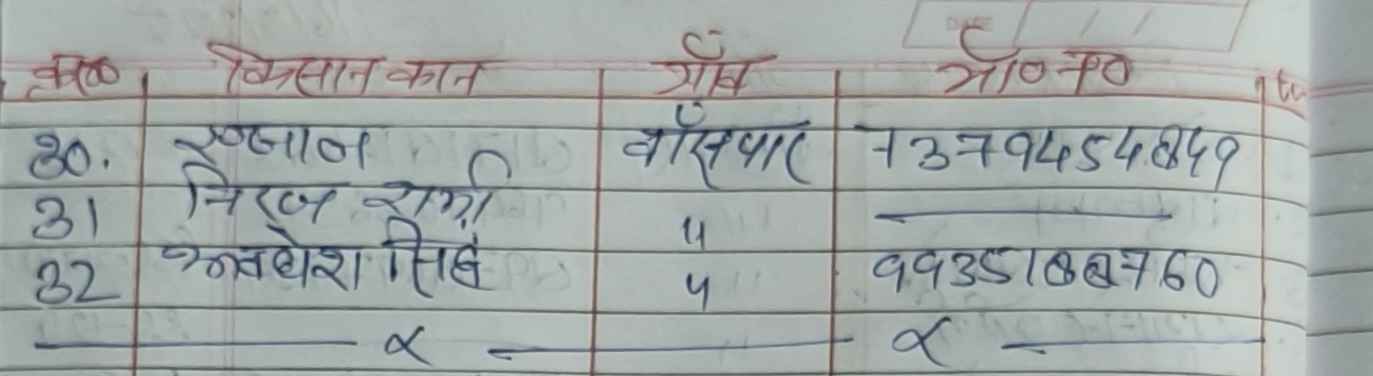 क्र०स० किसान का नाम गाँव मो० न०
30. रमजान बाँसपार 7379454849
31 निरज शर्मा 〃 ———
32 अवधेश सिंह 〃 9935188760
——— × ——— × ———